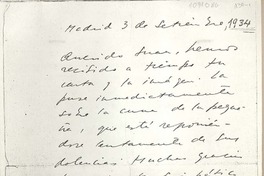 Madrid 3 de Setiembre 1934
Querido Juan, hemos
recibido a tiempo su
carta y la imágen. La
puse inmediatamente
sobre la cuna de la peque
ña, que está reponién-
dose lentamente de sus
dolencias. Muchas gracias